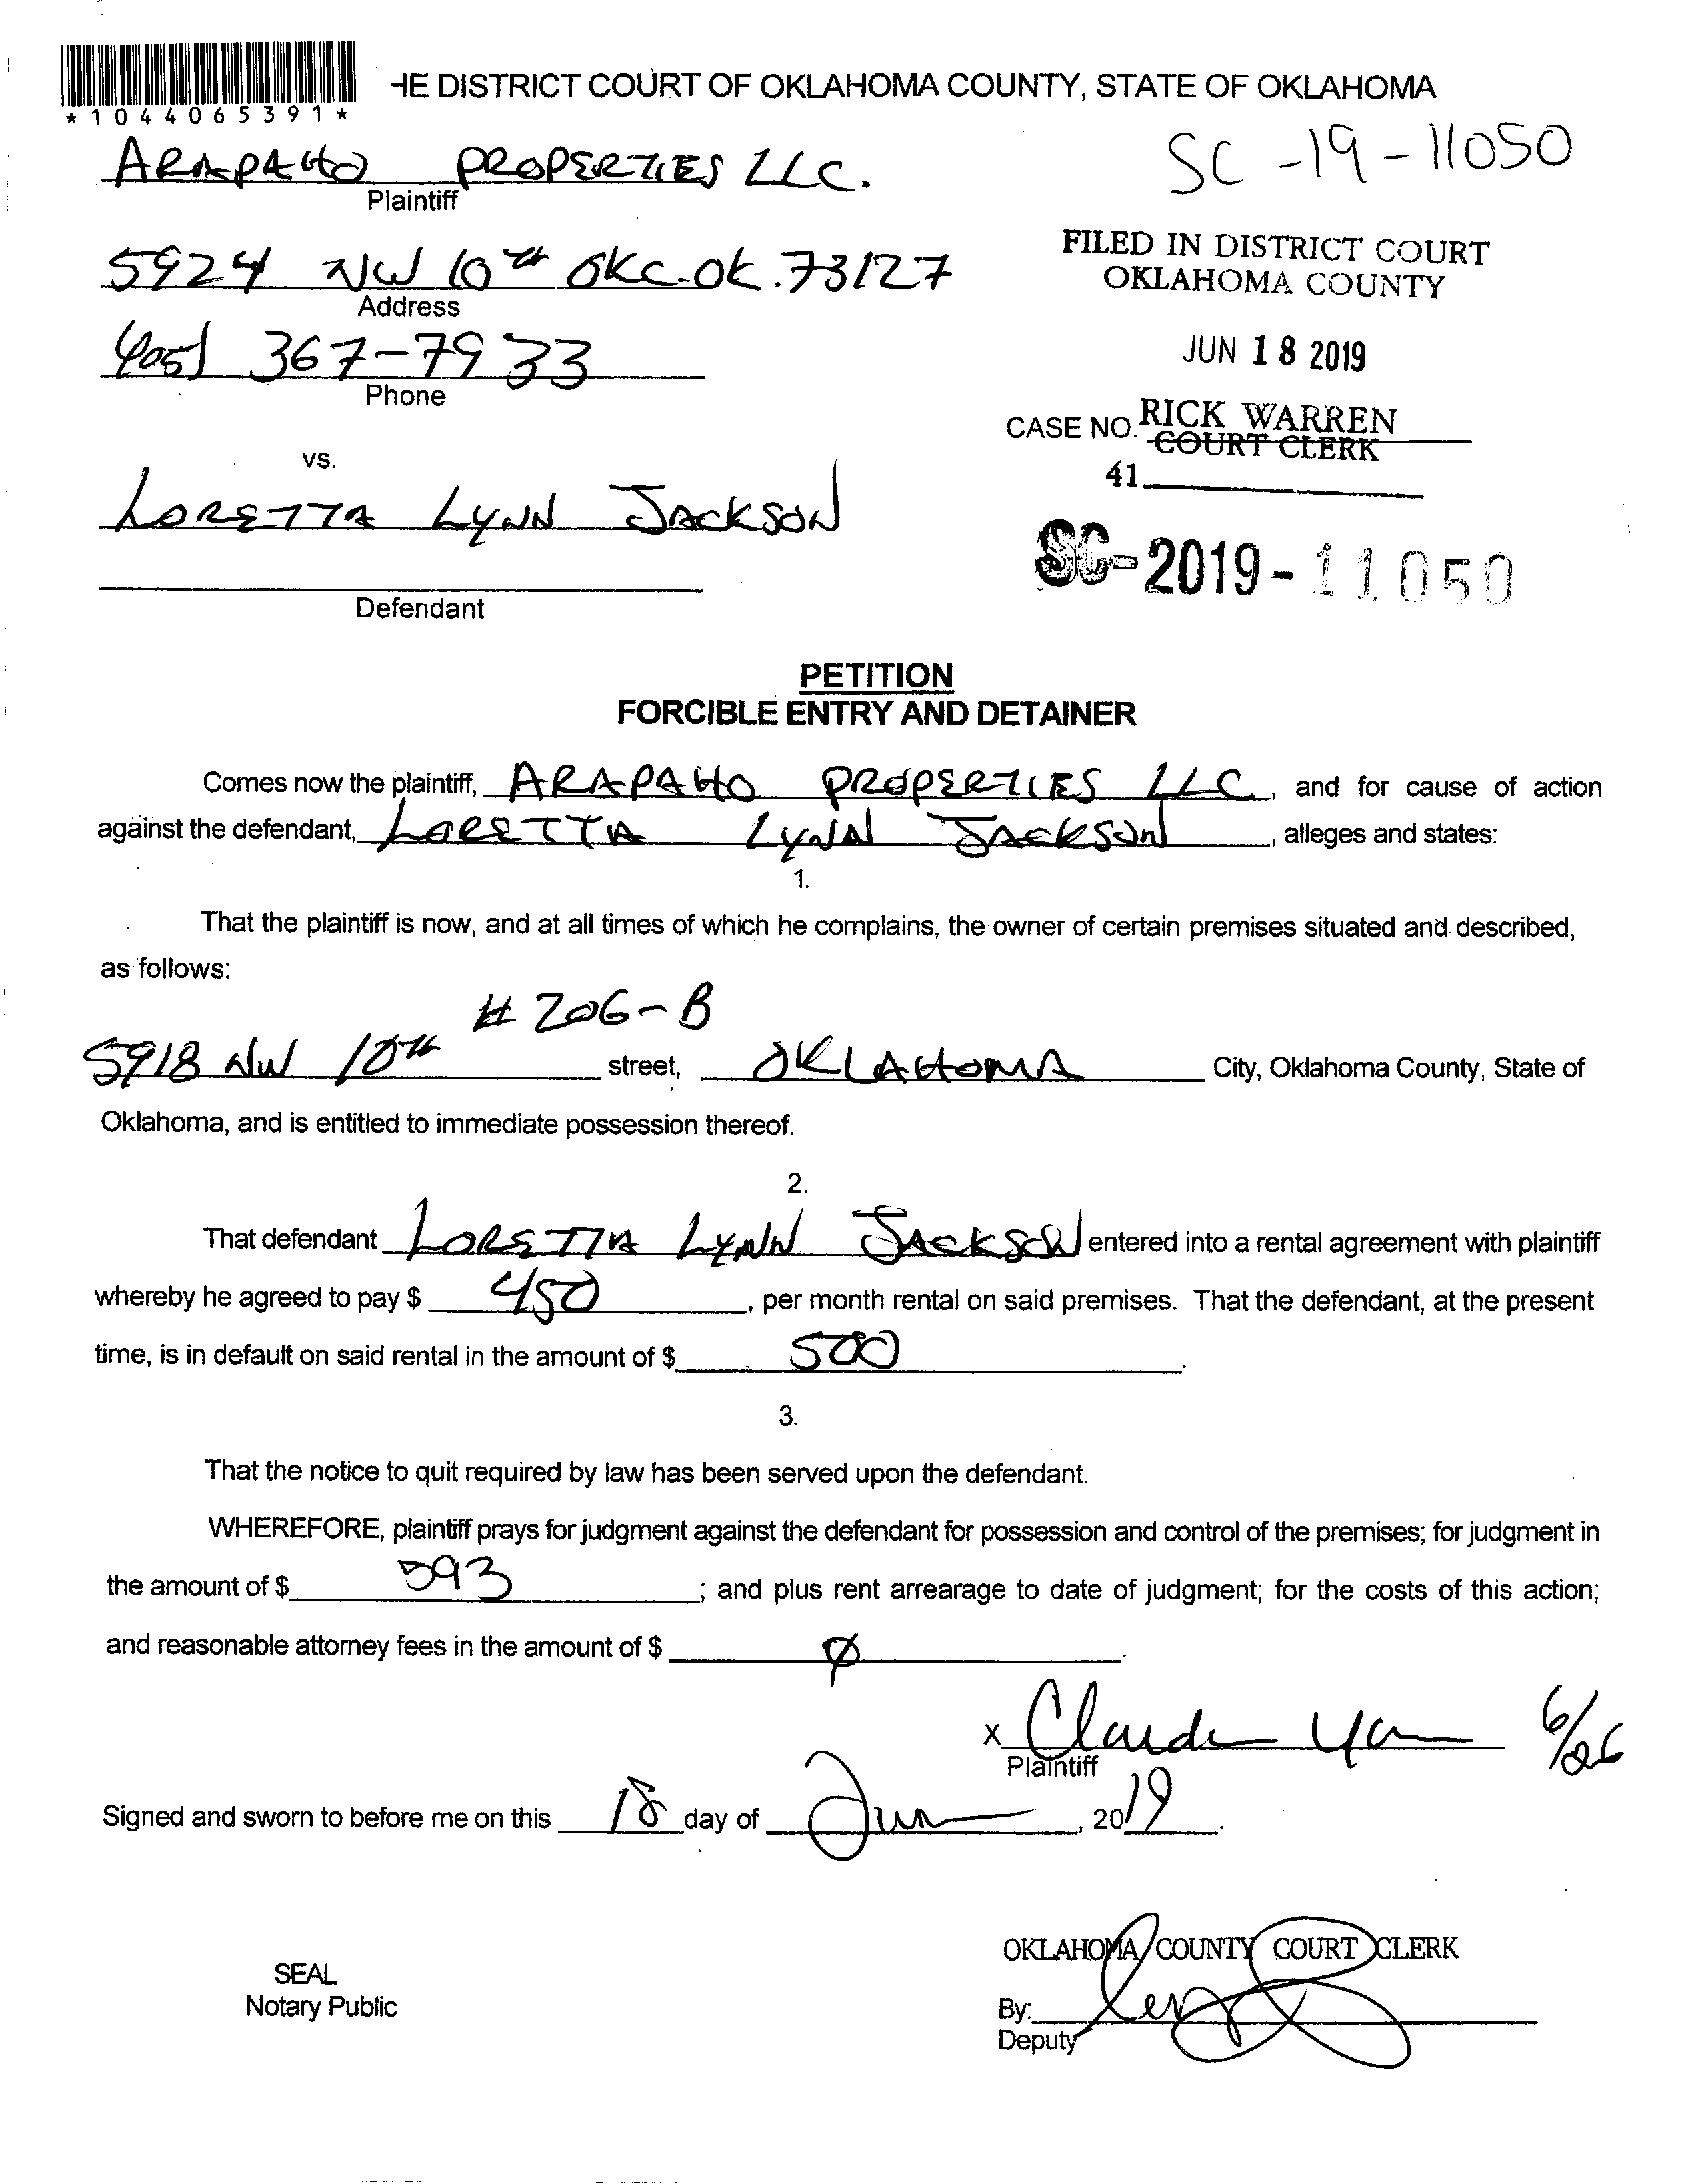 HE DISTRICT COURT OF OKLAHOMA COUNTY, STATE OF OKLAHOMA
*1044065391*
ARAPAHO PROPERTIES LLC.
Plaintiff
SC-19-11050
5924 NW 10th OKC.OK.73127
Address
FILED IN DISTRICT COURT
OKLAHOMA COUNTY
(405) 367-7933
Phone
JUN 18 2019
CASE NO. RICK WARREN
COURT CLERK
vs.
41
LORETTA LYNN JACKSON
Defendant
SC-2019-11050
PETITION
FORCIBLE ENTRY AND DETAINER
Comes now the plaintiff, ARAPAHO PROPERTIES LLC, and for cause of action
against the defendant, LORETTA LYNN JACKSON, alleges and states:
1.
That the plaintiff is now, and at all times of which he complains, the owner of certain premises situated and described,
as follows:
# 206-B
5918 NW 10th street, OKLAHOMA City, Oklahoma County, State of
Oklahoma, and is entitled to immediate possession thereof.
2.
That defendant LORETTA LYNN JACKSON entered into a rental agreement with plaintiff
whereby he agreed to pay $ 450, per month rental on said premises. That the defendant, at the present
time, is in default on said rental in the amount of $ 500.
3.
That the notice to quit required by law has been served upon the defendant.
WHEREFORE, plaintiff prays for judgment against the defendant for possession and control of the premises; for judgment in
the amount of $ 593; and plus rent arrearage to date of judgment; for the costs of this action;
and reasonable attorney fees in the amount of $ Ø.
x 6/26
Plaintiff
Signed and sworn to before me on this 18 day of June, 2019.
OKLAHOMA COUNTY COURT CLERK
SEAL
Notary Public
By:
Deputy